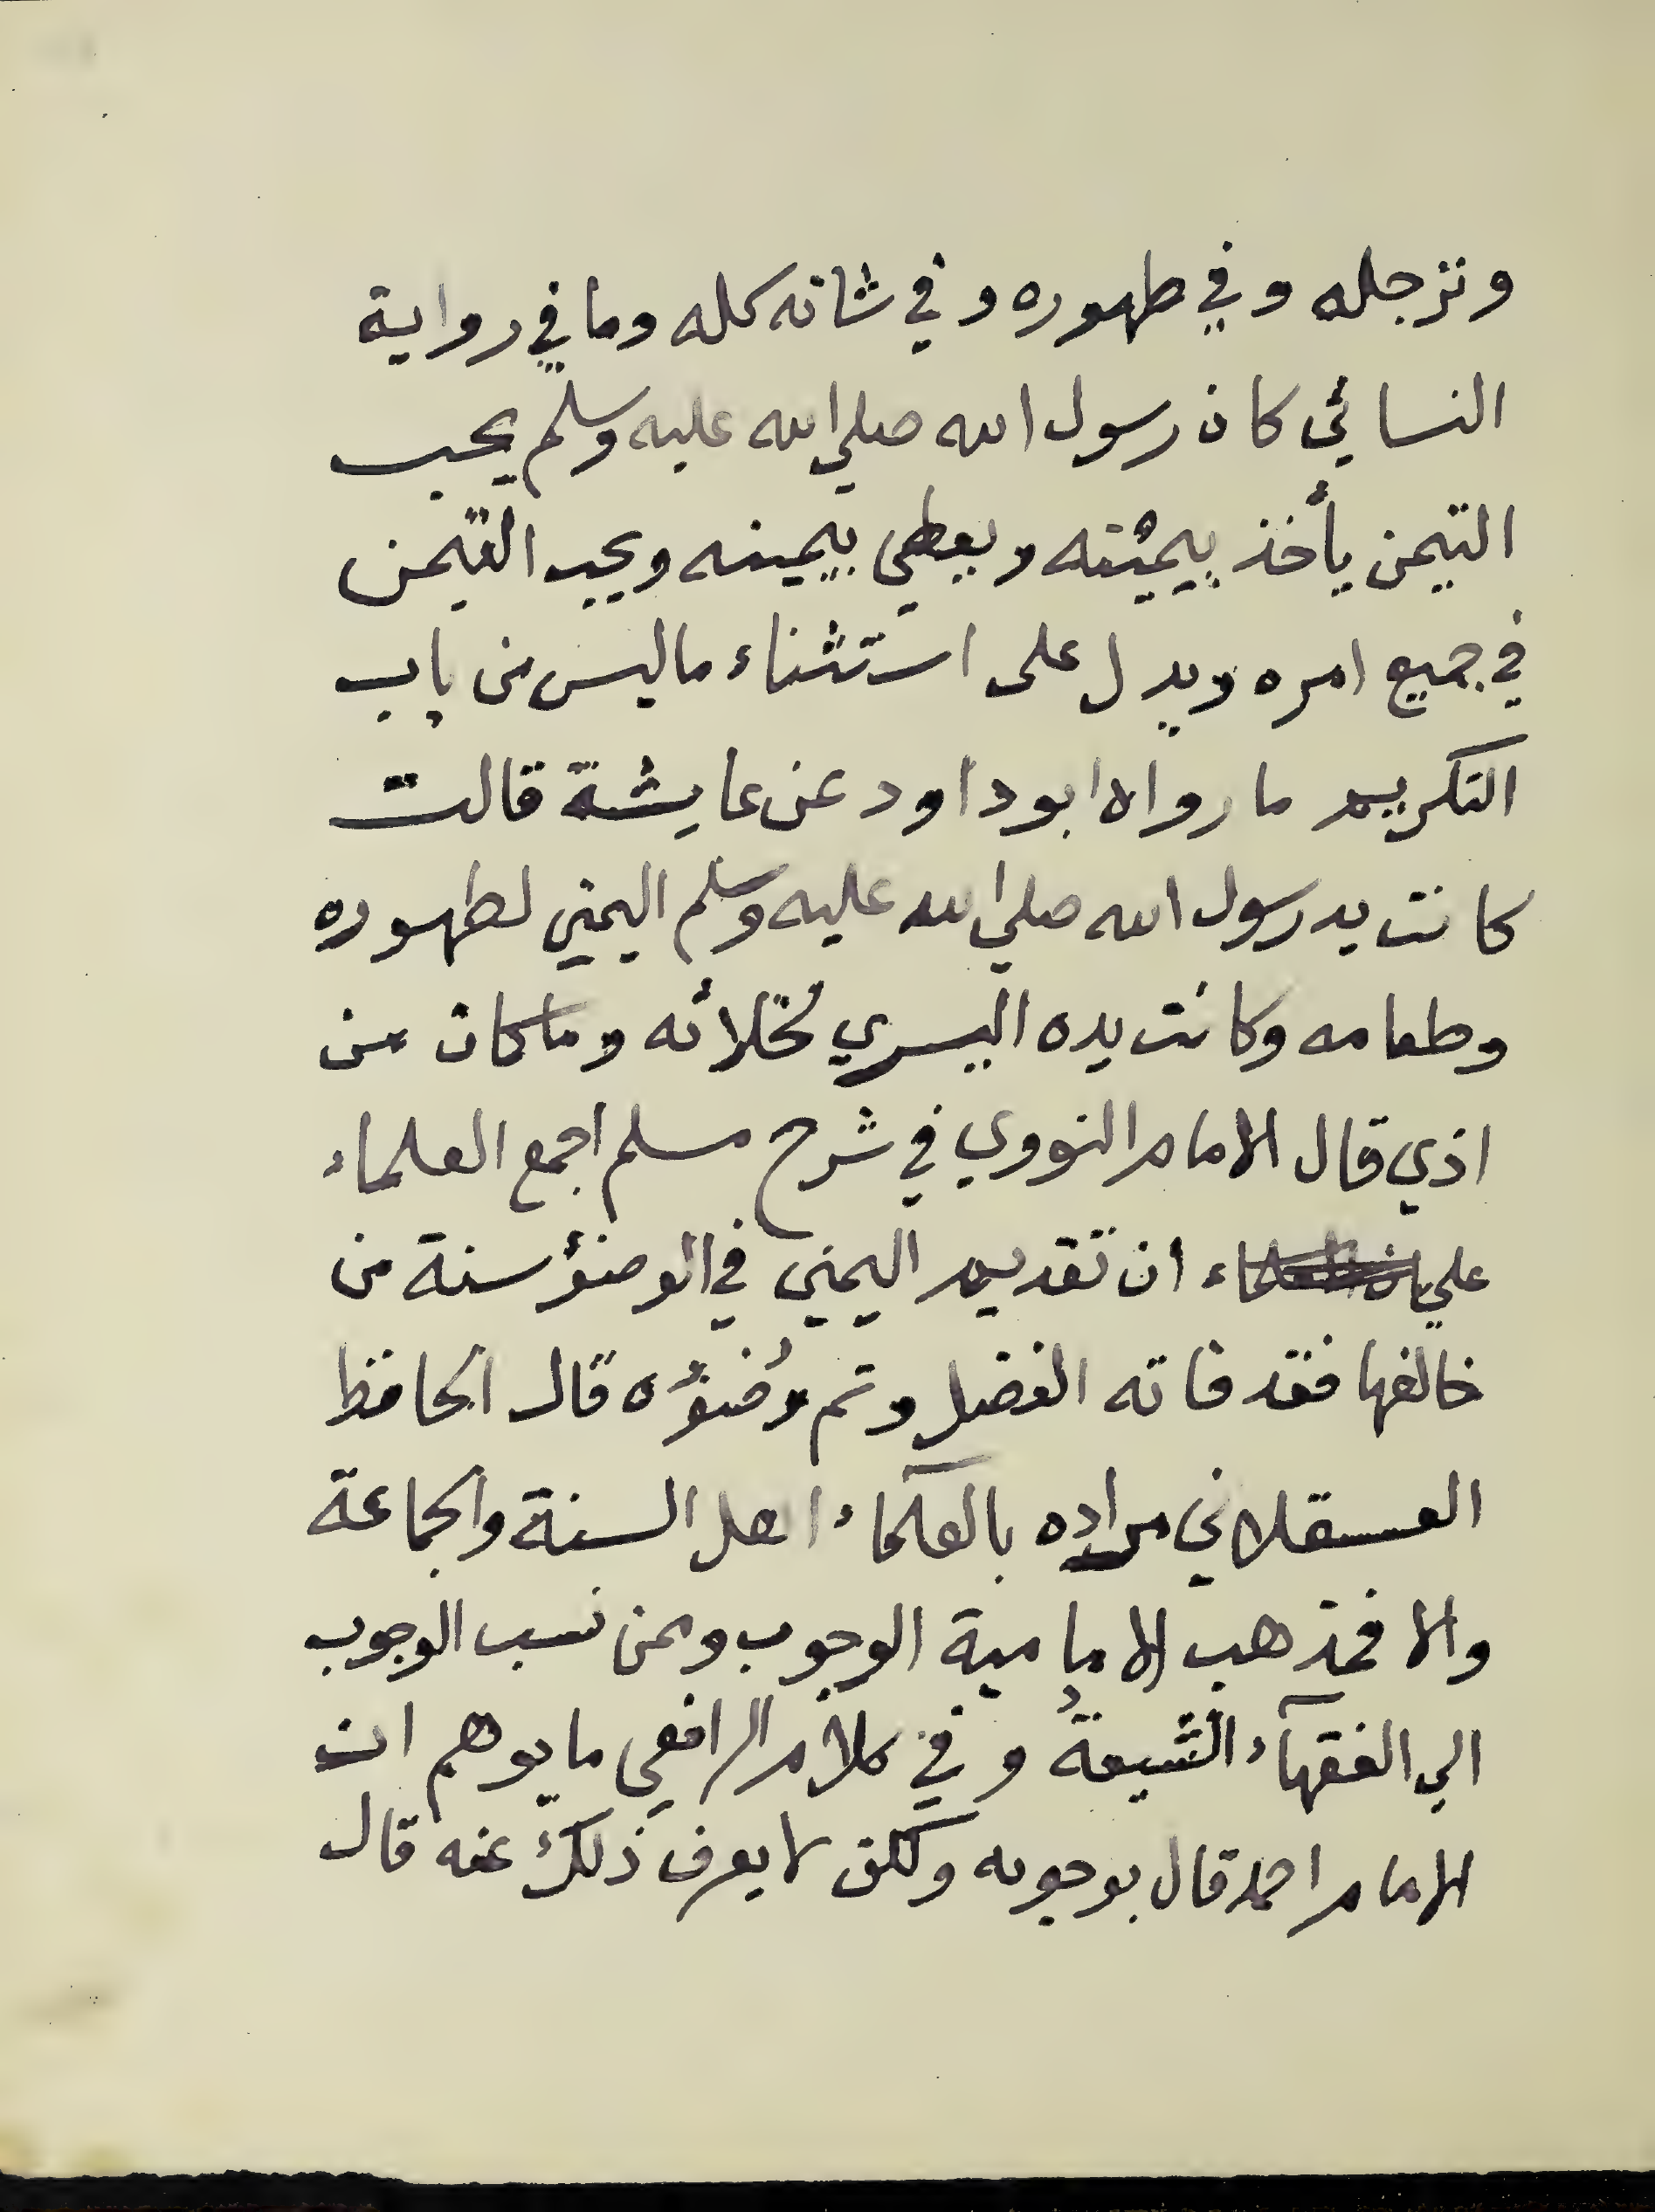 وترجله وفي طهوره وفي شانه كله وما في رواية
النسائي كان رسول الله صلي الله عليه وسلم يحب
التيمن يأخذ بيمينه ويعطي بيمينه ويحب التيمن
في جميع امره ويدل على استثناء ما ليس من باب
التكريم ما رواه ابو داود عن عايشة قالت
كانت يد رسول الله صلي الله عليه وسلم اليمني لطهوره
وطعامه وكانت يده اليسري لخلائه وما كان من
اذي قال الامام النووي في شرح مسلم اجمع العلماء
علي ان تقديم اليمني في الوضؤ سنة من
خالفها فقد فاته الفضل وتم وُضوُؤه قال الحافظ
العسقلاني مراده بالعلمآء اهل السنة والجماعة
والا فمذهب الامامية الوجوب وممن نسب الوجوب
الي الفقهآء الشيعةُ وفي كلام الرافعي ما يوهم ان
الامام احمد قال بوجوبه ولكن لا يعرف ذلك عنه قال